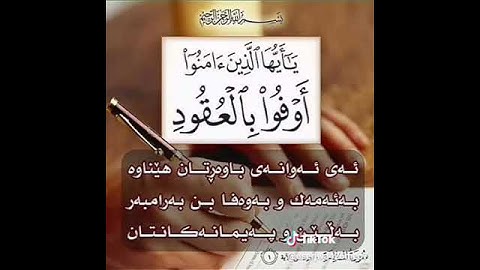 بسم الله الرحمن الرحيم
يَٰٓأَيُّهَا ٱلَّذِينَ ءَامَنُوٓا۟
أَوْفُوا۟ بِٱلْعُقُودِ
ئەی ئەوانەی باوەڕتان هێناوە
بەئەمەك و بەوەفا بن بەرامبەر
بەڵێن و پەیمانەکانتان
TikTok